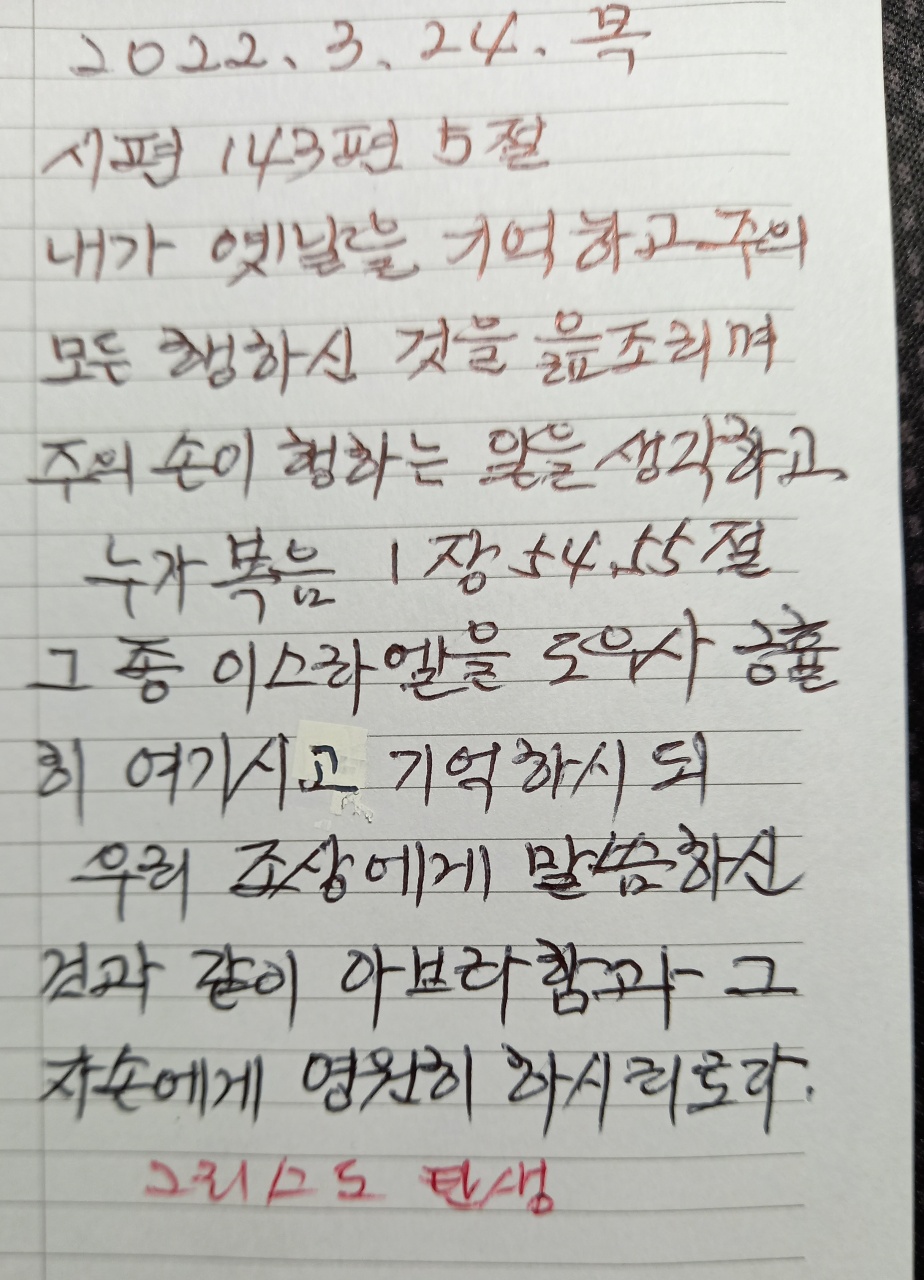 2022. 3. 24. 목
시편 143편 5절
내가 옛날을 기억하고 주의
모든 행하신 것을 읊조리며
주의 손이 행하는 일을 생각하고
누가복음 1장 54.55절
그 종 이스라엘을 도우사 긍휼
히 여기시고 기억하시되
우리 조상에게 말씀하신
것과 같이 아브라함과 그
자손에게 영원히 하시리로다.
그리스도 탄생